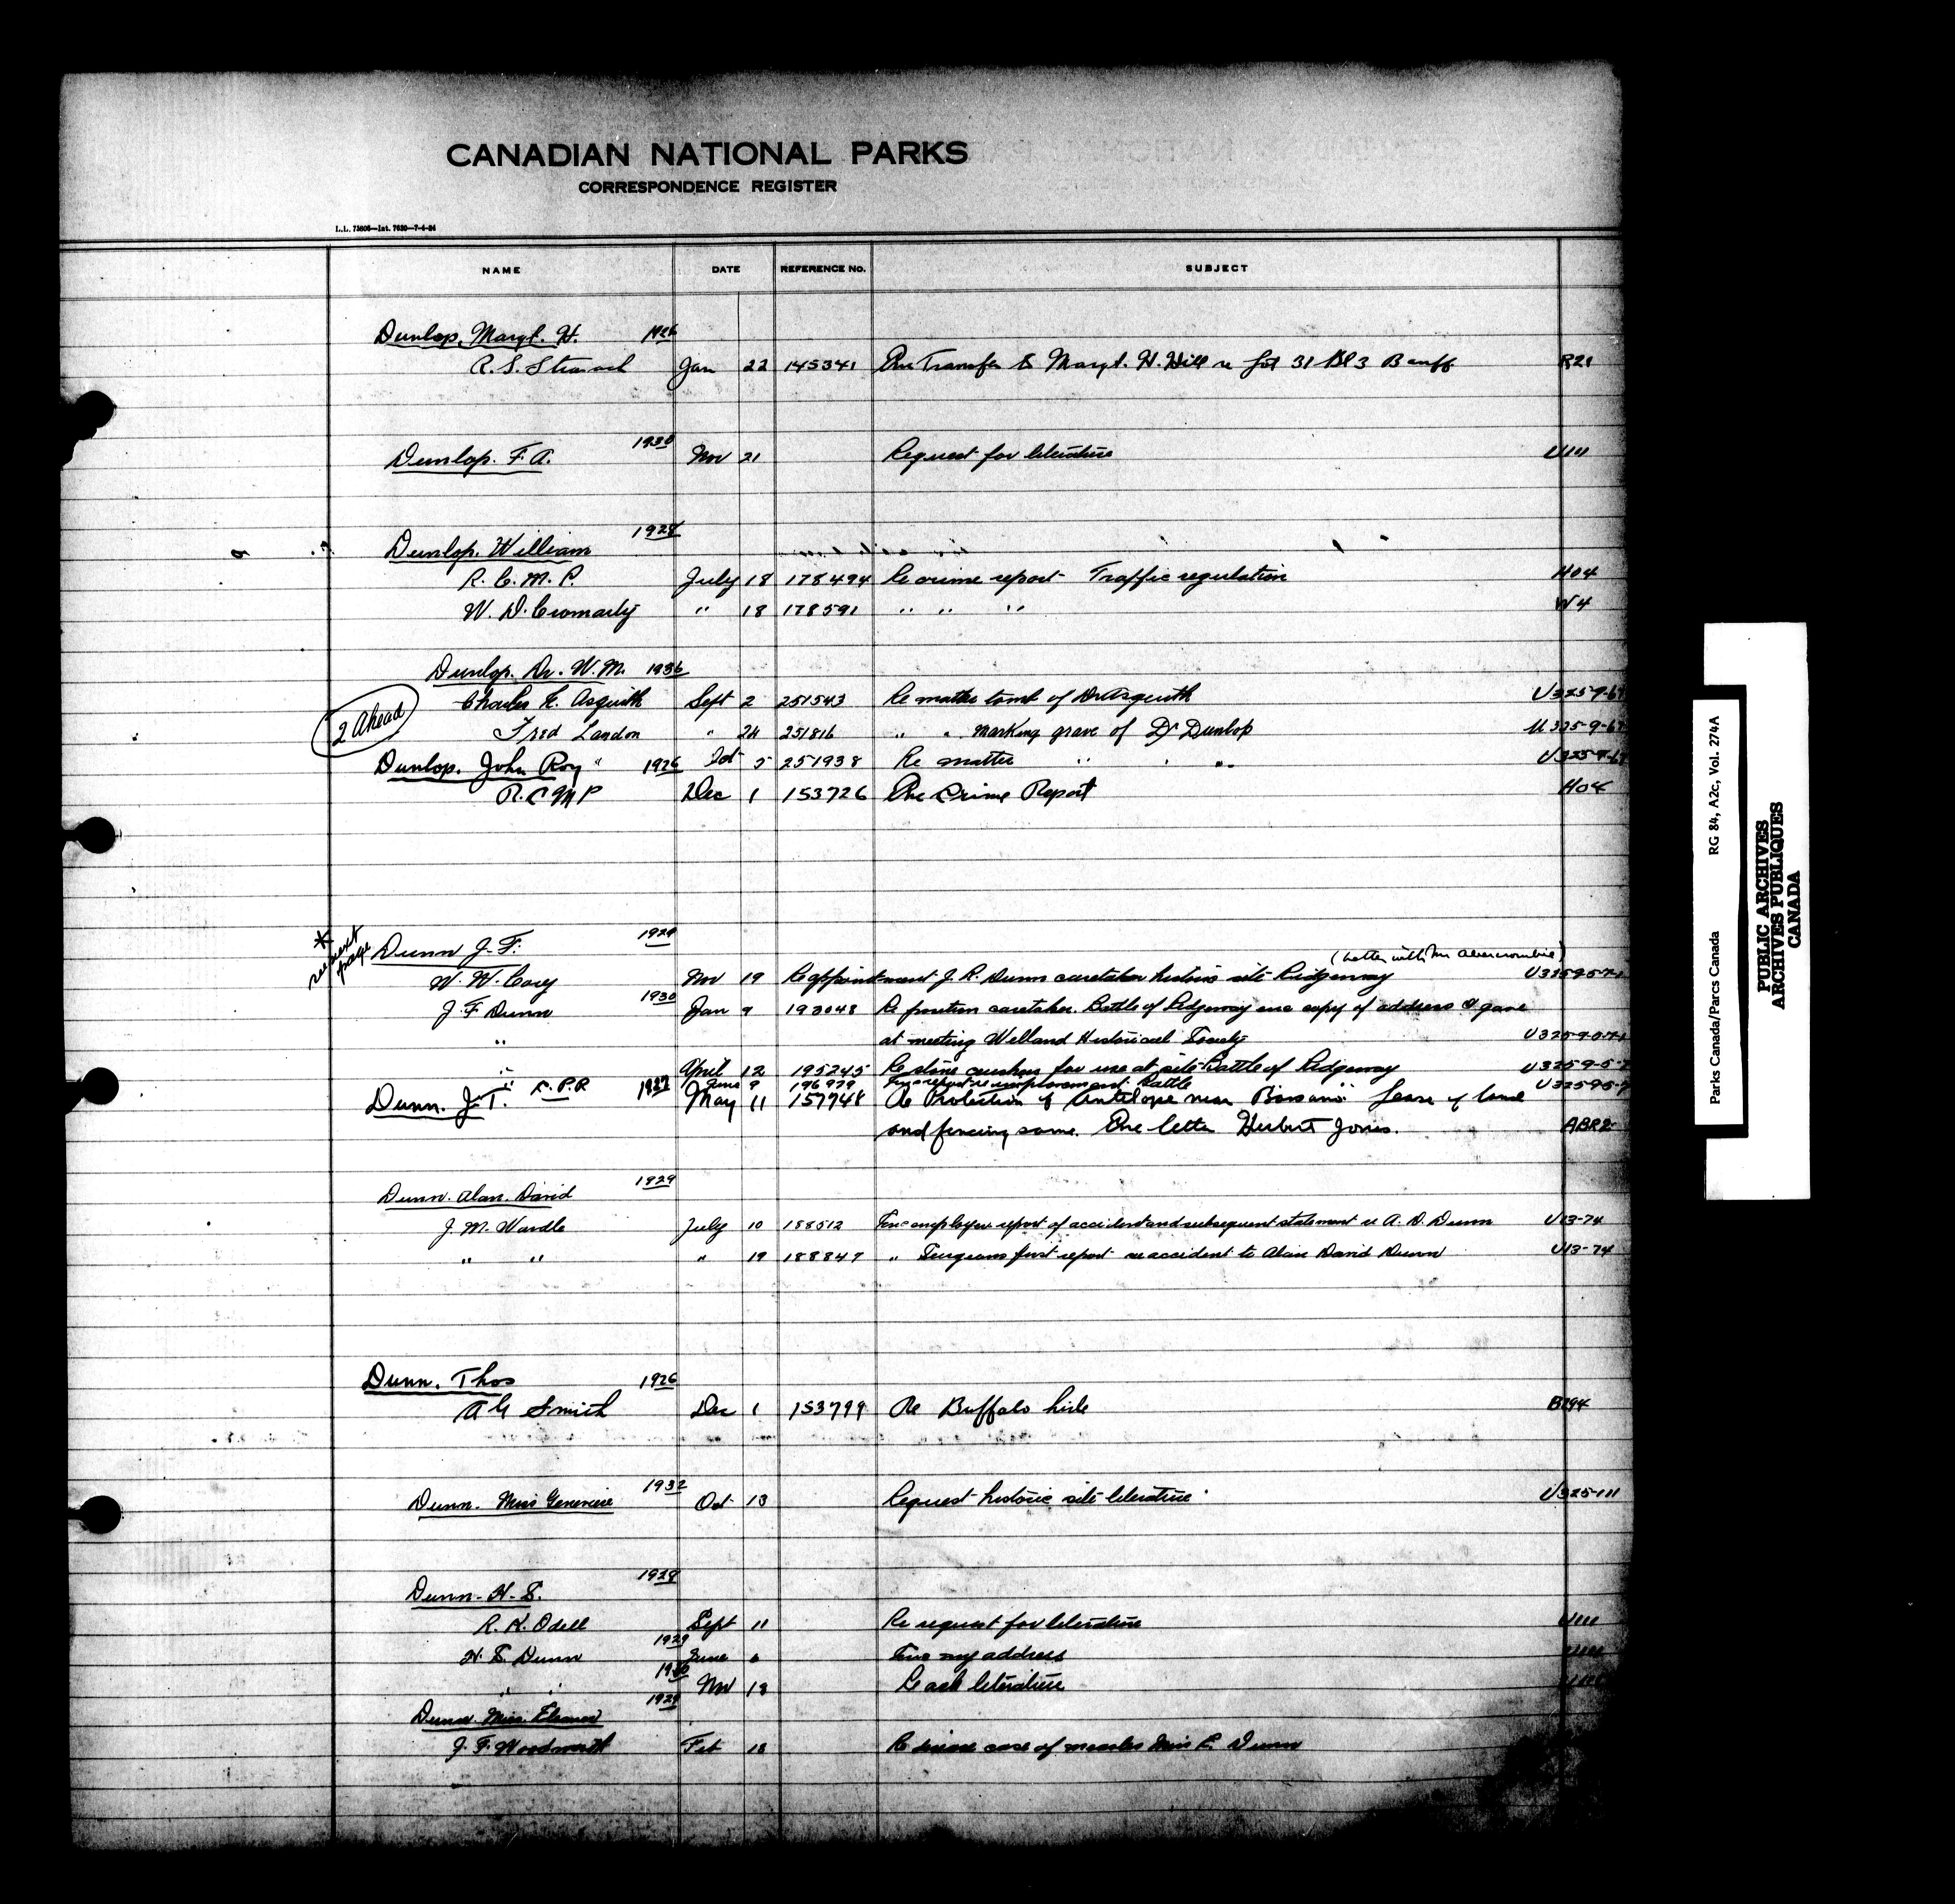 CANADIAN NATIONAL PARKS
CORRESPONDENCE REGISTER
L.L. 73806—Int. 7630—7-4-24
NAME DATE REFERENCE No. SUBJECT
Dunlop, Margt. H. 1926
R. S. Stronach Jan 22 145341 Transfer to Margt. H. Hill re Lot 31 Bl 3 Banff R21
Dunlop. F. A. 1930 Nov 21 Request for literature U111
Dunlop. William 1928
R. C. M. P. July 18 178494 Re crime report Traffic regulation H04
W. D. Cromarty " 18 178591 " " " W4
Dunlop. Dr. W. M. 1936
Charles E. Asquith Sept 2 251543 Re matter tomb of Dr Asquith U325-9-67
2 Ahead
Fred Landon " 24 251816 " " marking grave of Dr Dunlop U325-9-67
" Oct 5 251938 Re matter " " " U325-9-67
Dunlop. John Roy 1926
R. C M P Dec 1 153726 Crime Report H04
* see next page
Dunn J. F. 1929
(Letter with Mr Abercrombie)
W. W. Cory Nov 19 Re appointment J. R. Dunn caretaker historic site Ridgeway
J. F Dunn 1930 Jan 9 193048 Re position caretaker. Battle of Ridgeway enc copy of address I gave
" at meeting Welland Historical Society
" April 12 195245 Re stone for use at site Battle of Ridgeway
" June 9 196979 Battle
Dunn. J. T. C. P. R 1927 May 11 157748 Re Protection of Antelope near Lease of land
and fencing same. letter Herbert Jones. ABR2
Dunn. Alan. David 1929
J. M. Wardle July 10 188512 employers report of accident and subsequent statement re A. D. Dunn U13-74
" " " 19 188847 " Surgeons first report re accident to Alan David Dunn U13-74
Dunn. Thos 1926
A G Smith Dec 1 153799 Re Buffalo hide B294
Dunn. Miss Genevieve 1932 Oct 13 Request historic site literature U325-111
Dunn. H. S. 1929
R. K. Odell Sept 11 Re request for literature U111
H. S. Dunn 1929 June 6 my address
" " 1930 Nov 18 Re ask literature
Dunn. Miss. Eleanor 1929
J. F. Woodworth Feb 18 Re case of measles Miss E. Dunn
Parks Canada/Parcs Canada RG 84, A2c, Vol. 274A
PUBLIC ARCHIVES
ARCHIVES PUBLIQUES
CANADA